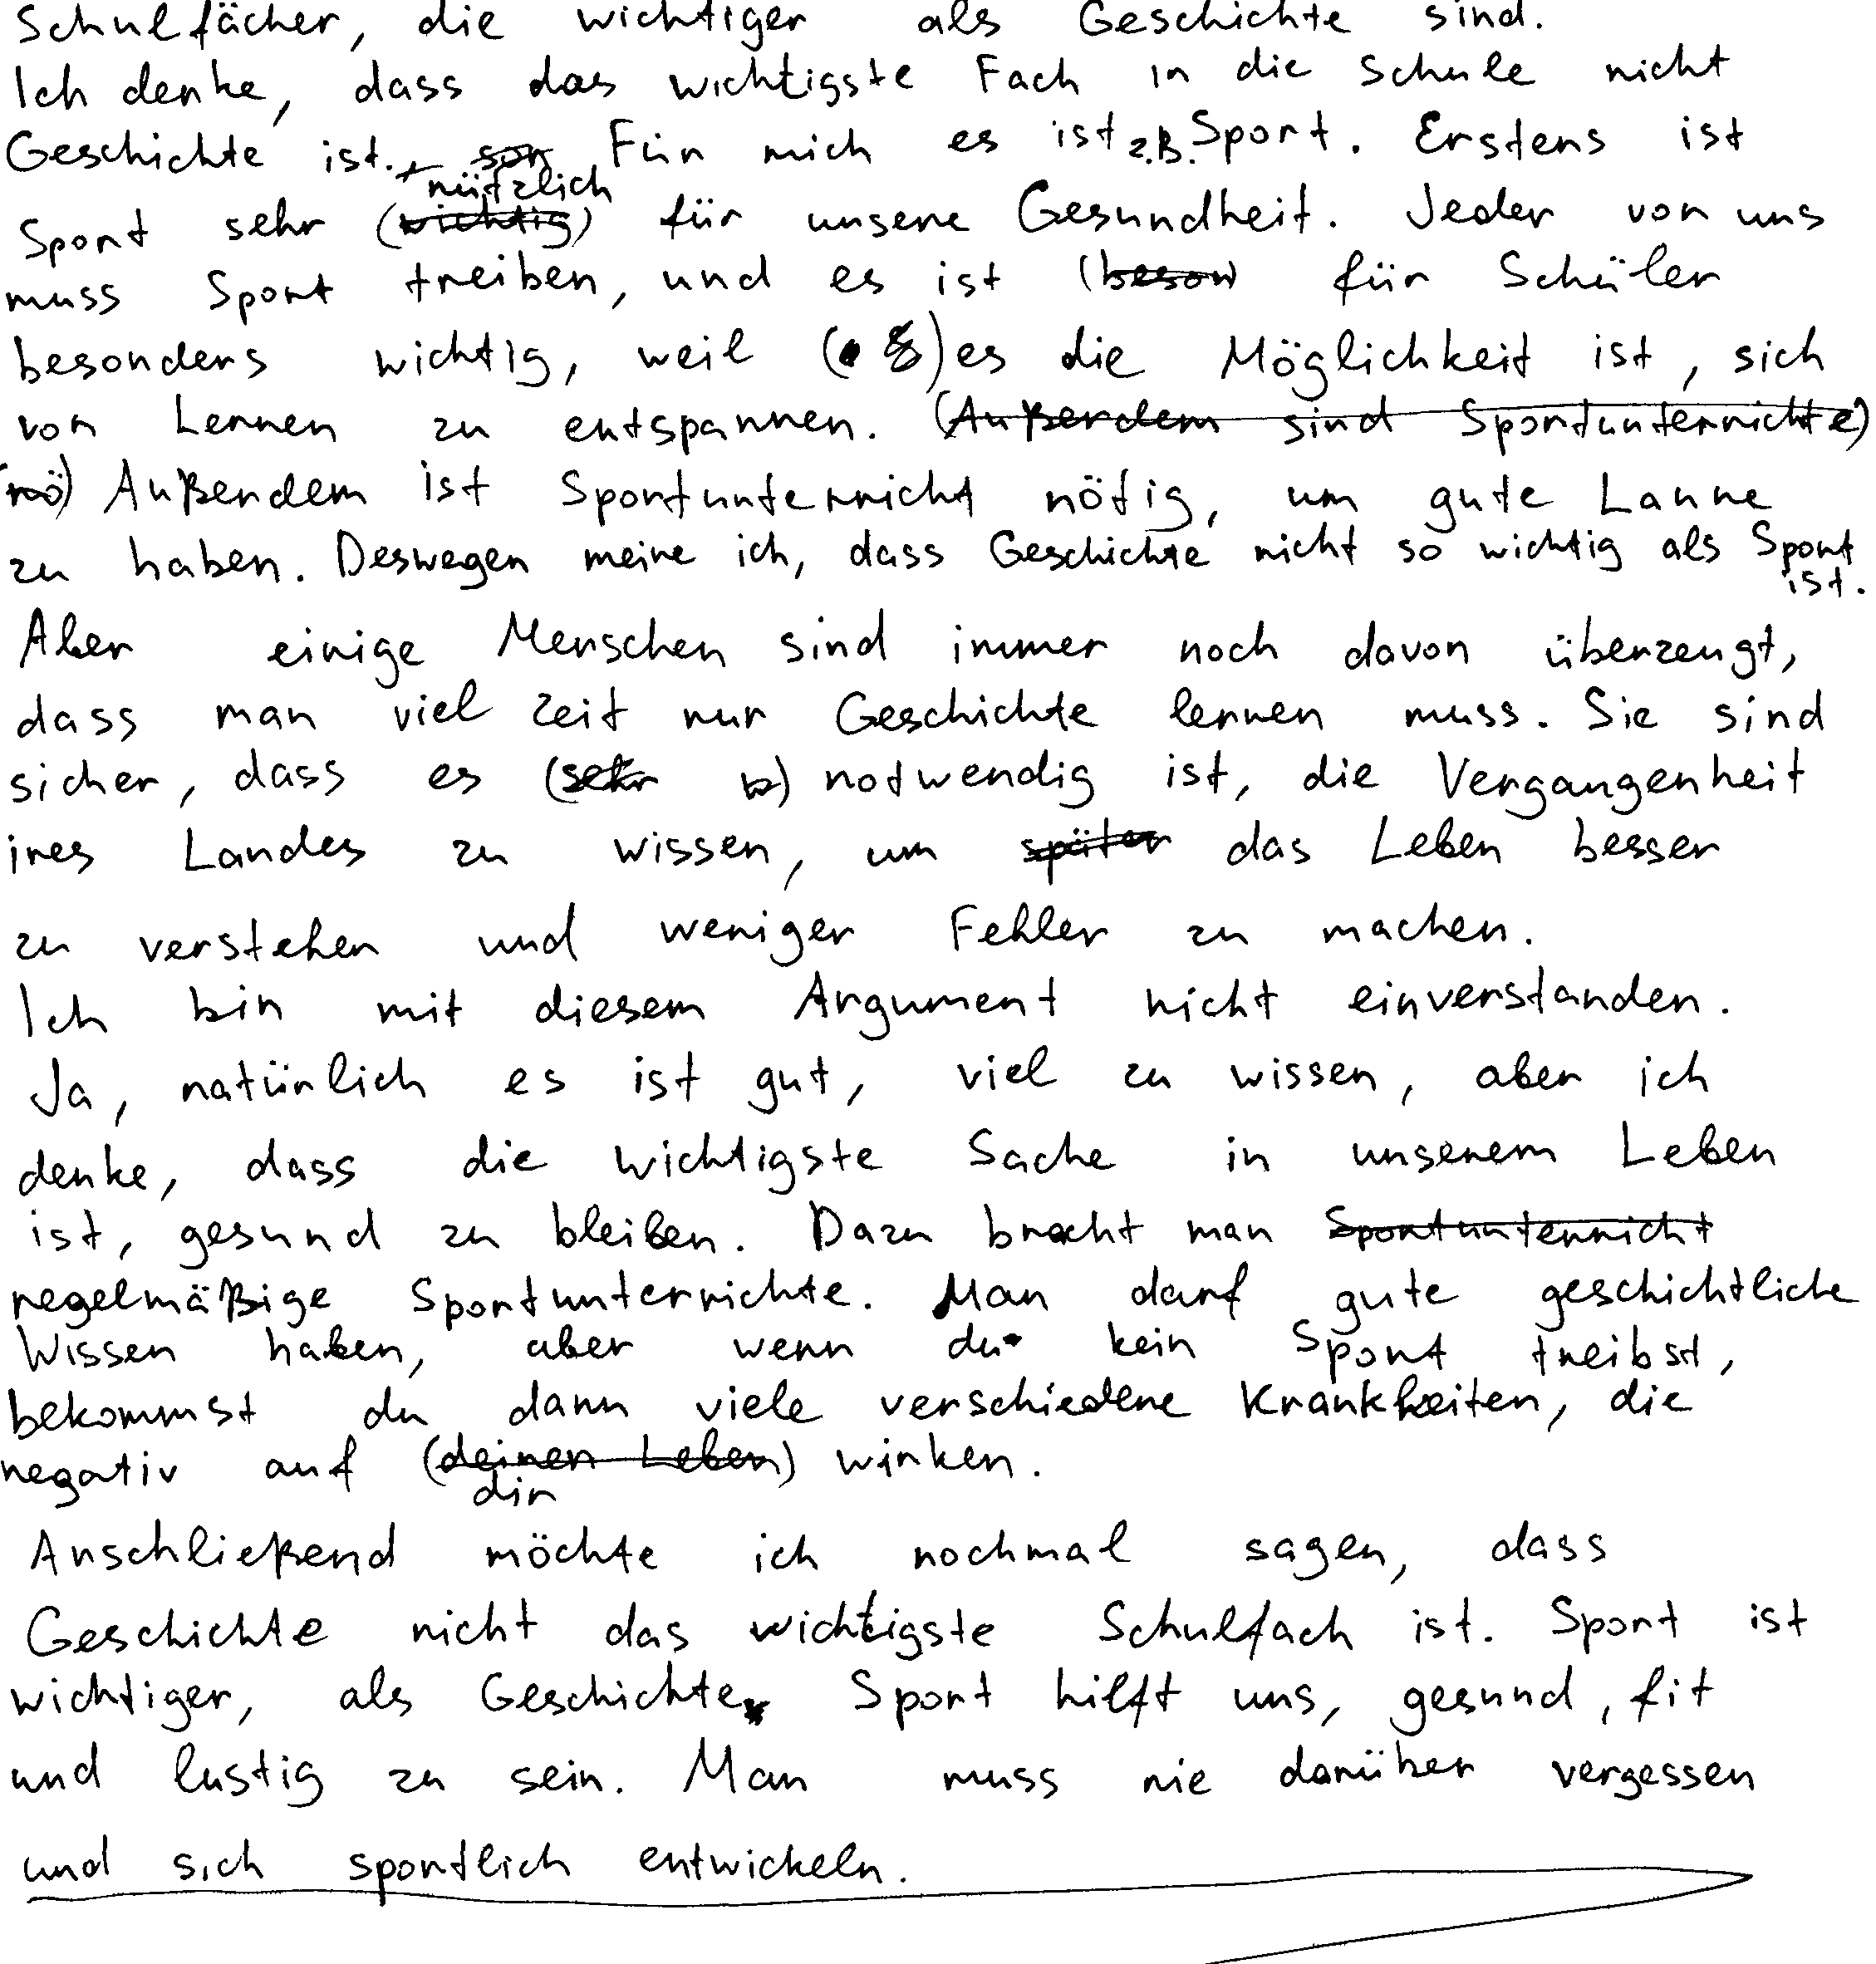 Schulfächer, die wichtiger als Geschichte sind.
Ich denke, dass das wichtigste Fach in die Schule nicht
Geschichte ist. Für mich es ist z.B. Sport. Erstens ist
nützlich
Sport sehr (wichtig) für unsere Gesundheit. Jeder von uns
muss Sport treiben, und es ist (beson) für Schüler
besonders wichtig, weil es die Möglichkeit ist, sich
von Lernen zu entspannen. (Außerdem sind Sportunterrichte)
Außerdem ist Sportunterricht nötig, um gute Laune
zu haben. Deswegen meine ich, dass Geschichte nicht so wichtig als Sport
ist.
Aber einige Menschen sind immer noch davon überzeugt,
dass man viel Zeit nur Geschichte lernen muss. Sie sind
sicher, dass es (sehr w) notwendig ist, die Vergangenheit
ires Landes zu wissen, um später das Leben besser
zu verstehen und weniger Fehler zu machen.
Ich bin mit diesem Argument nicht einverstanden.
Ja, natürlich es ist gut, viel zu wissen, aber ich
denke, dass die wichtigste Sache in unserem Leben
ist, gesund zu bleiben. Dazu bracht man Sportunterricht
regelmäßige Sportunterrichte. Man darf gute geschichtliche
Wissen haben, aber wenn du kein Sport treibst,
bekommst du dann viele verschiedene Krankheiten, die
negativ auf (deinen Leben) wirken.
dir
Anschließend möchte ich nochmal sagen, dass
Geschichte nicht das wichtigste Schulfach ist. Sport ist
wichtiger, als Geschichte. Sport hilft uns, gesund, fit
und lustig zu sein. Man muss nie darüber vergessen
und sich sportlich entwickeln.